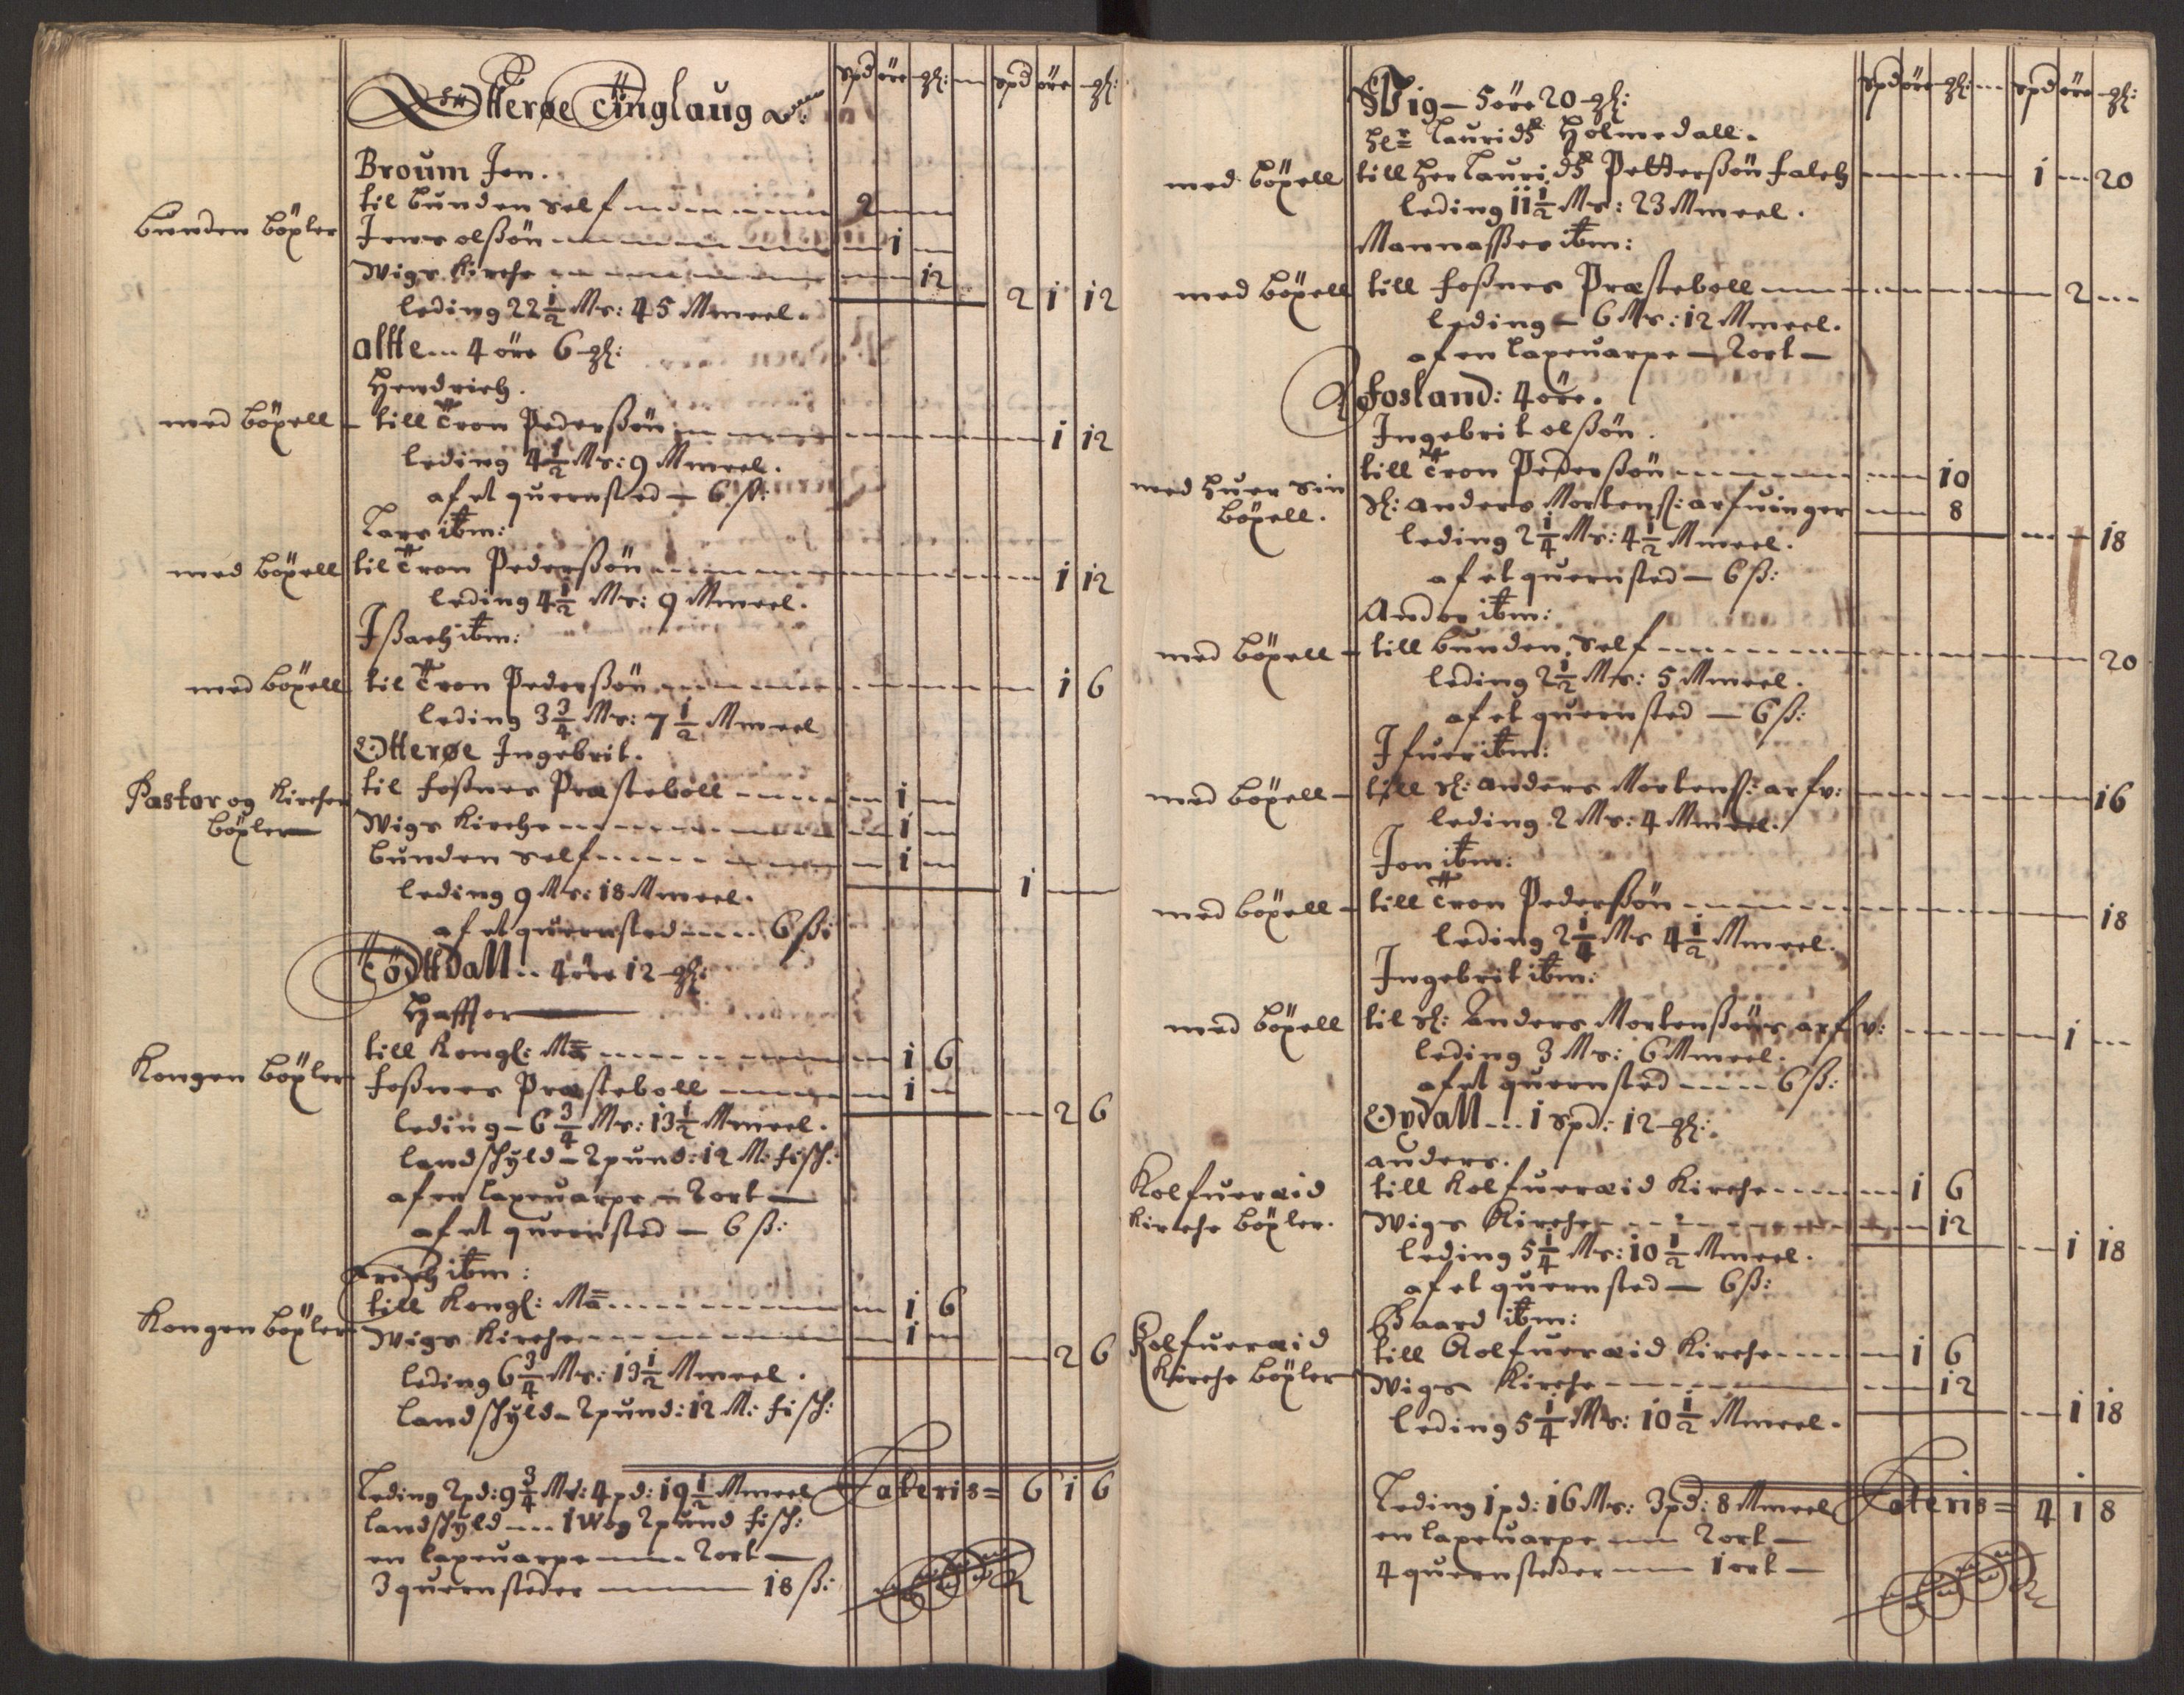 Otterøe Tinglaug
spd öre gl: spd öre gl:
Broum Jen.
til bunden self 2
bunden böxler
Jens olßön 1
Wigs kirche 12
2 1 12
leding 22 1/2 Mr: 45 Mmeel.
altte 4 öre 6 gl:
Hendrich.
med böxell till Tron Pederßön 1 12
leding 4 1/2 Mr: 9 Mmeel.
af et quernsted – 6 ß:
Lars ibm:
med böxell til Tron Pederßön 1 12
leding 4 1/2 Mr: 9 Mmeel.
Ißach ibm:
med böxell til Tron Pederßön 1 6
leding 3 3/4 Mr: 7 1/2 Mmeel
Otterøe Ingebrit.
Pastor og Kirchen böxler
til Foßnes Præsteboll 1
Wigs Kirche 1
bunden self 1
1
leding 9 Mr: 18 Mmeel.
af et quernsted 6 ß:
Tödttdall 4 öre 12 gl:
Haffor
Kongen böxler
till Kongl: Ma 1 6
Foßnes Præsteboll 1
2 6
leding – 6 3/4 Mr: 13 1/2 Mmeel.
landschyld – 2 pund: 12 M: fisch:
af en laxeuarpe – 2 ort –
af et quernsted – 6 ß:
Erich ibm:
Kongen böxler
till Kongl: Ma 1 6
Wigs Kirche 1
2 6
leding 6 3/4 Mr: 13 1/2 Mmeel.
landschyld – 2 pund: 12 M: fisch:
Leding 2 pd: 9 3/4 Mr: 4 pd: 19 1/2 Mmeel Lateris = 6 1 6
landschyld – 1 wog 2 pund fisch:
en laxeuarpe 2 ort –
3 quernsteder 18 ß:
spd öre gl: spd öre gl:
Wig – 5 öre 20 gl:
Hr Lauridß Holmedall.
med böxell till Her Lauridß Petterßön Falch 1 20
leding 11 1/2 Mr: 23 Mmeel.
Mannaßes ibm:
med böxell till Foßnes Præsteboll 2
leding – 6 Mr: 12 Mmeel.
af en laxeuarpe – 2 ort –
Fosland: 4 öre.
Ingebrit olßön.
med huer sin böxell.
till Tron Pederßön 10
Sl: anders Mortenß: arfuinger 8
18
leding 2 1/4 Mr: 4 1/2 Mmeel.
af et quernsted – 6 ß:
Anders ibm:
med böxell till bunden self 20
leding 2 1/2 Mr: 5 Mmeel.
af et quernsted – 6 ß:
Ifuer ibm:
med böxell till Sl: anders Mortenß: arfv: 16
leding 2 Mr: 4 Mmeel.
Jon ibm:
med böxell till Tron Pederßön 18
leding 2 1/4 Mr 4 1/2 Mmeel.
Ingebrit ibm:
med böxell til Sl: Anders Mortenßöns arfv: 1
leding 3 Mr: 6 Mmeel.
af et quernsted 6 ß:
Opdall 1 spd: 12 gl:
anders.
Kolfueræid kirche böxler.
till Kolfueræid Kirche 1 6
Wigs Kirche 12
1 18
leding 5 1/4 Mr: 10 1/2 Mmeel.
af et quernsted – 6 ß:
Baard ibm:
Kolfueræid Kirche böxler
till Kolfueræid Kirche 1 6
Wigs Kirche 12
1 18
leding 5 1/4 Mr: 10 1/2 Mmeel.
Leding 1 pd: 16 Mr: 3 pd: 8 Mmeel Lateris = 4 1 8
en laxeuarpe 2 ort –
4 quernsteder 1 ort –